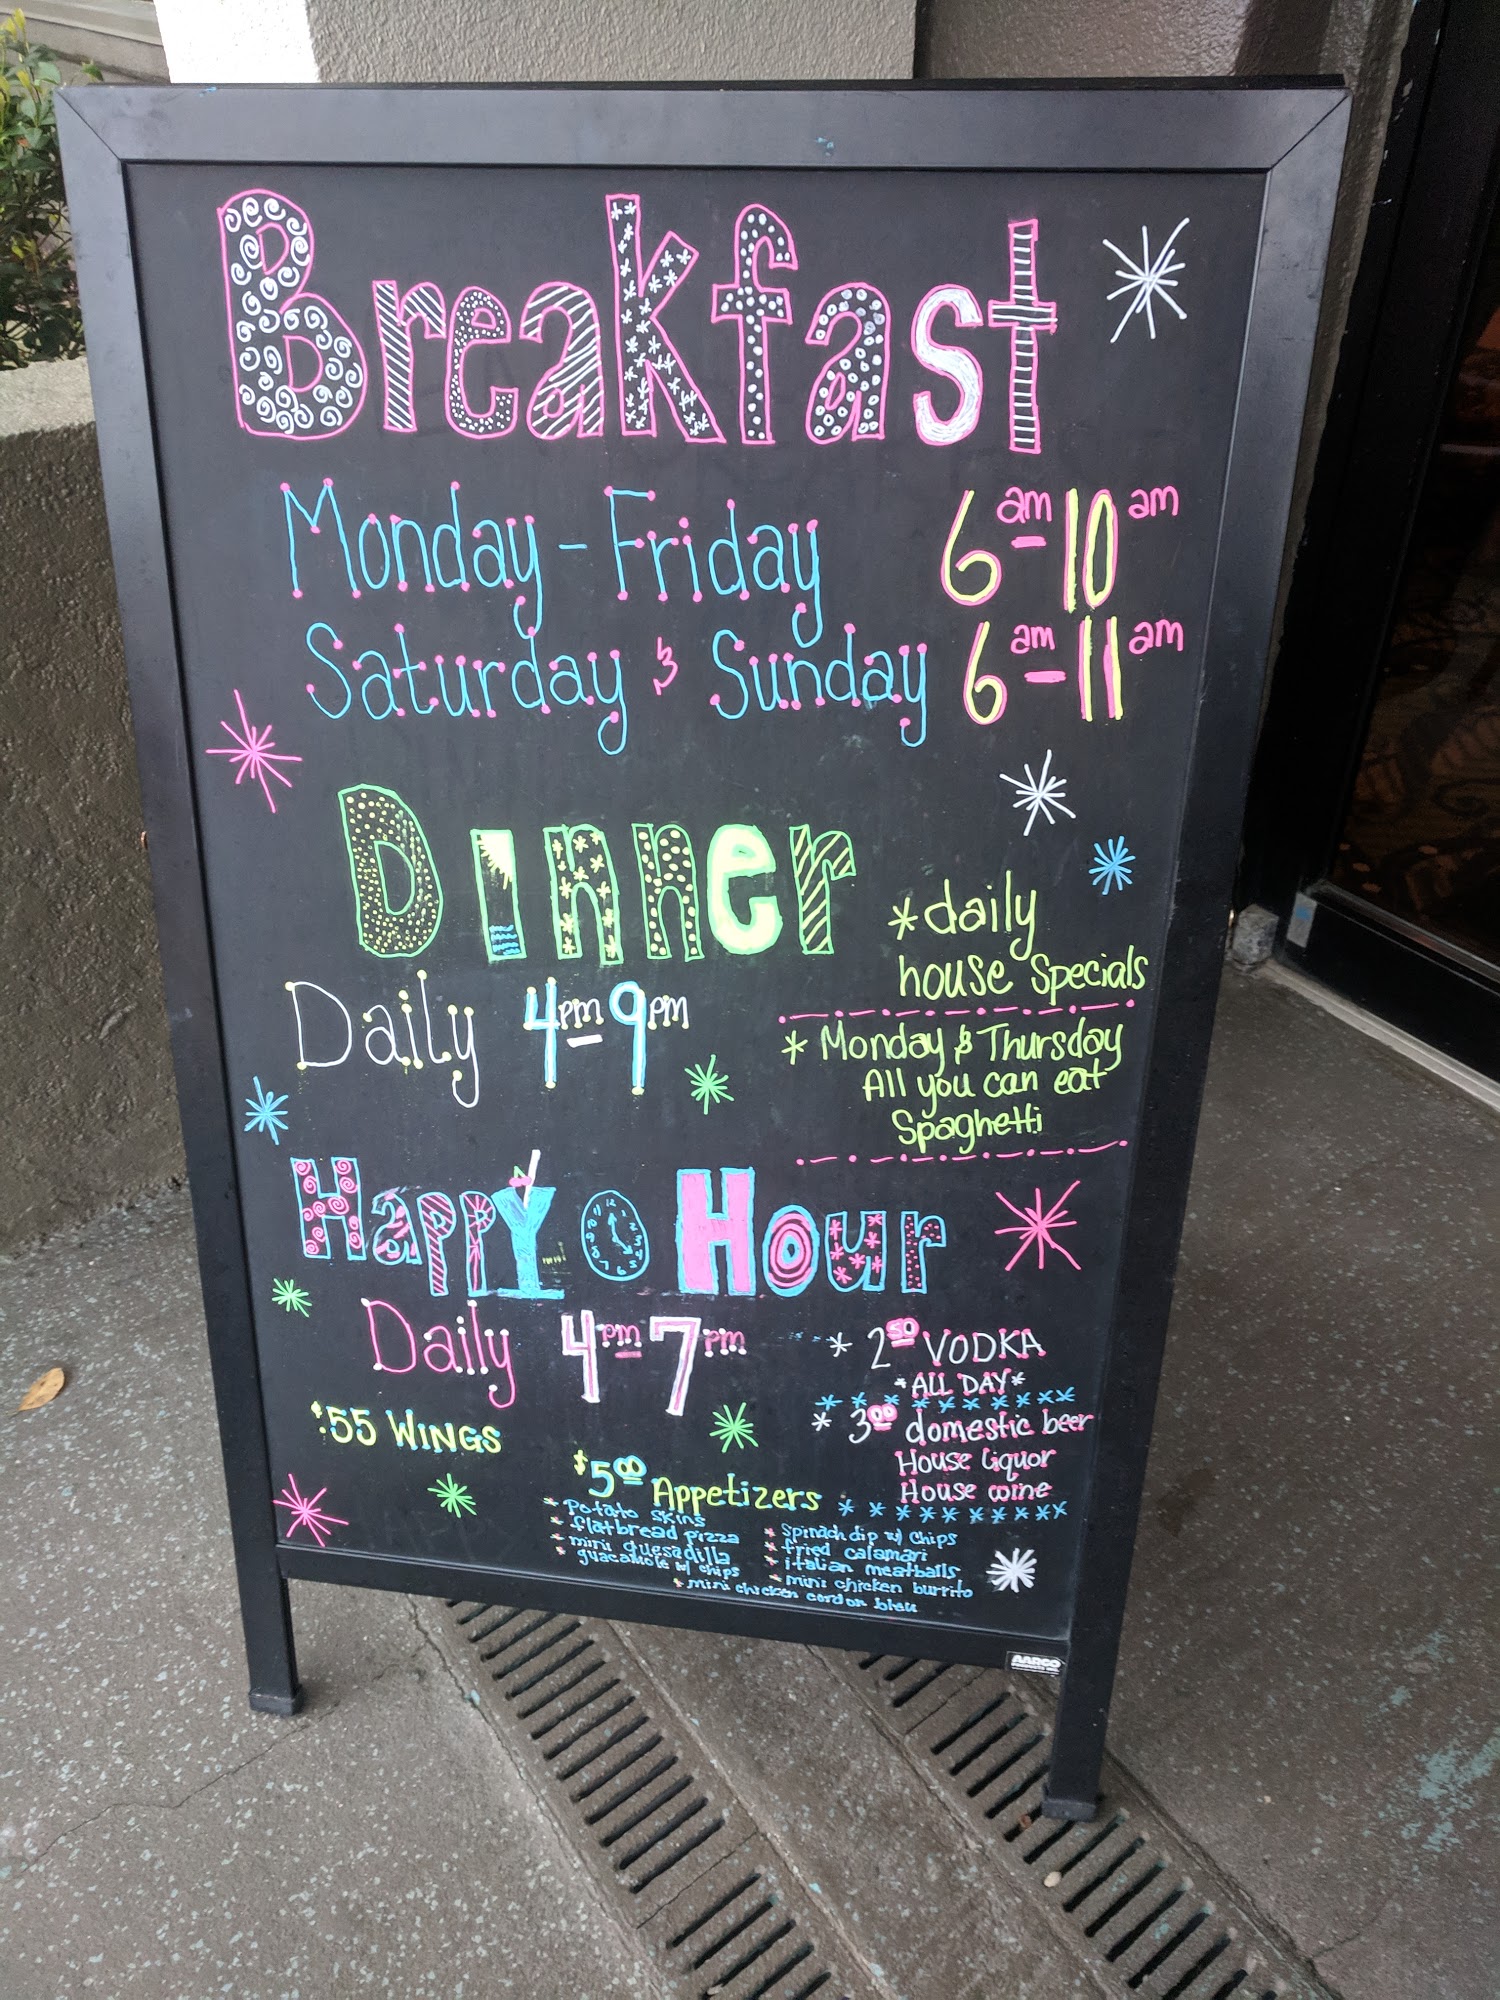 Breakfast
Monday - Friday 6am-10am
Saturday & Sunday 6am-11am
Dinner
*daily
house specials
Daily 4pm-9pm
* Monday & Thursday
All you can eat
Spaghetti
Happy Hour
Daily 4pm-7pm
* 2.50 VODKA
*ALL DAY*
$.55 WINGS
* 3.00 domestic beer
House liquor
House wine
$5.00 Appetizers
* potato skins
* flatbread pizza
* mini quesadilla
* guacamole w/ chips
* spinach dip w/ chips
* fried calamari
* italian meatballs
* mini chicken burrito
* mini chicken cordon bleu
AARCO
PRODUCTS INC.